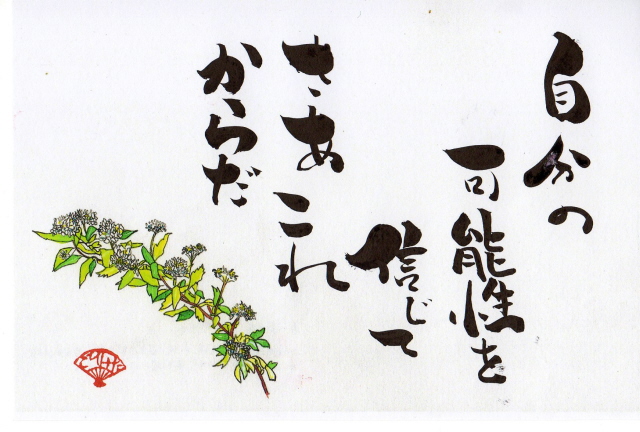 自分の
可能性を
信じて
さあ これ
からだ